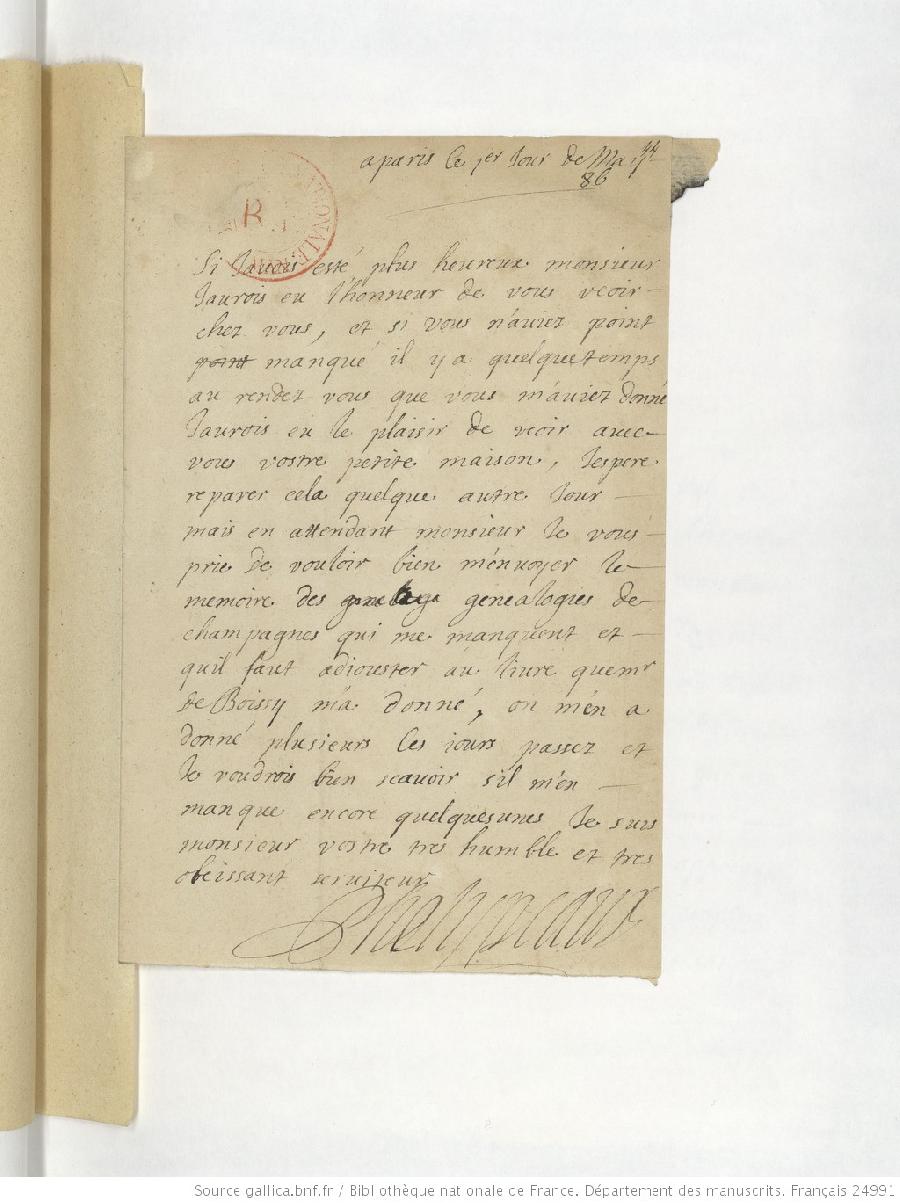 aparis ce 1er Jour de May
86
R
Si Javois esté plus heureux monsieur
Jaurois eu l'honneur de vous veoir
chez vous, et si vous n'aviez point
point manqué il y a quelque temps
au rendez vous que vous m'aviez donné
Jaurois eu le plaisir de veoir avec
vous vostre petite maison, Jespere
reparer cela quelque autre Jour
mais en attendant monsieur Je vous
prie de vouloir bien m'envoyer le
memoire des genealogies de
champagnes qui me manquent et
quil faut adjouster au livre que mr
de Boissy m'a donné, on m'en a
donné plusieurs ces jours passez et
Je voudrois bien scavoir s'il m'en
manque encore quelquesunes Je suis
monsieur vostre tres humble et tres
obeissant serviteur
Source gallica.bnf.fr / Bibliothèque nationale de France. Département des manuscrits. Français 24991